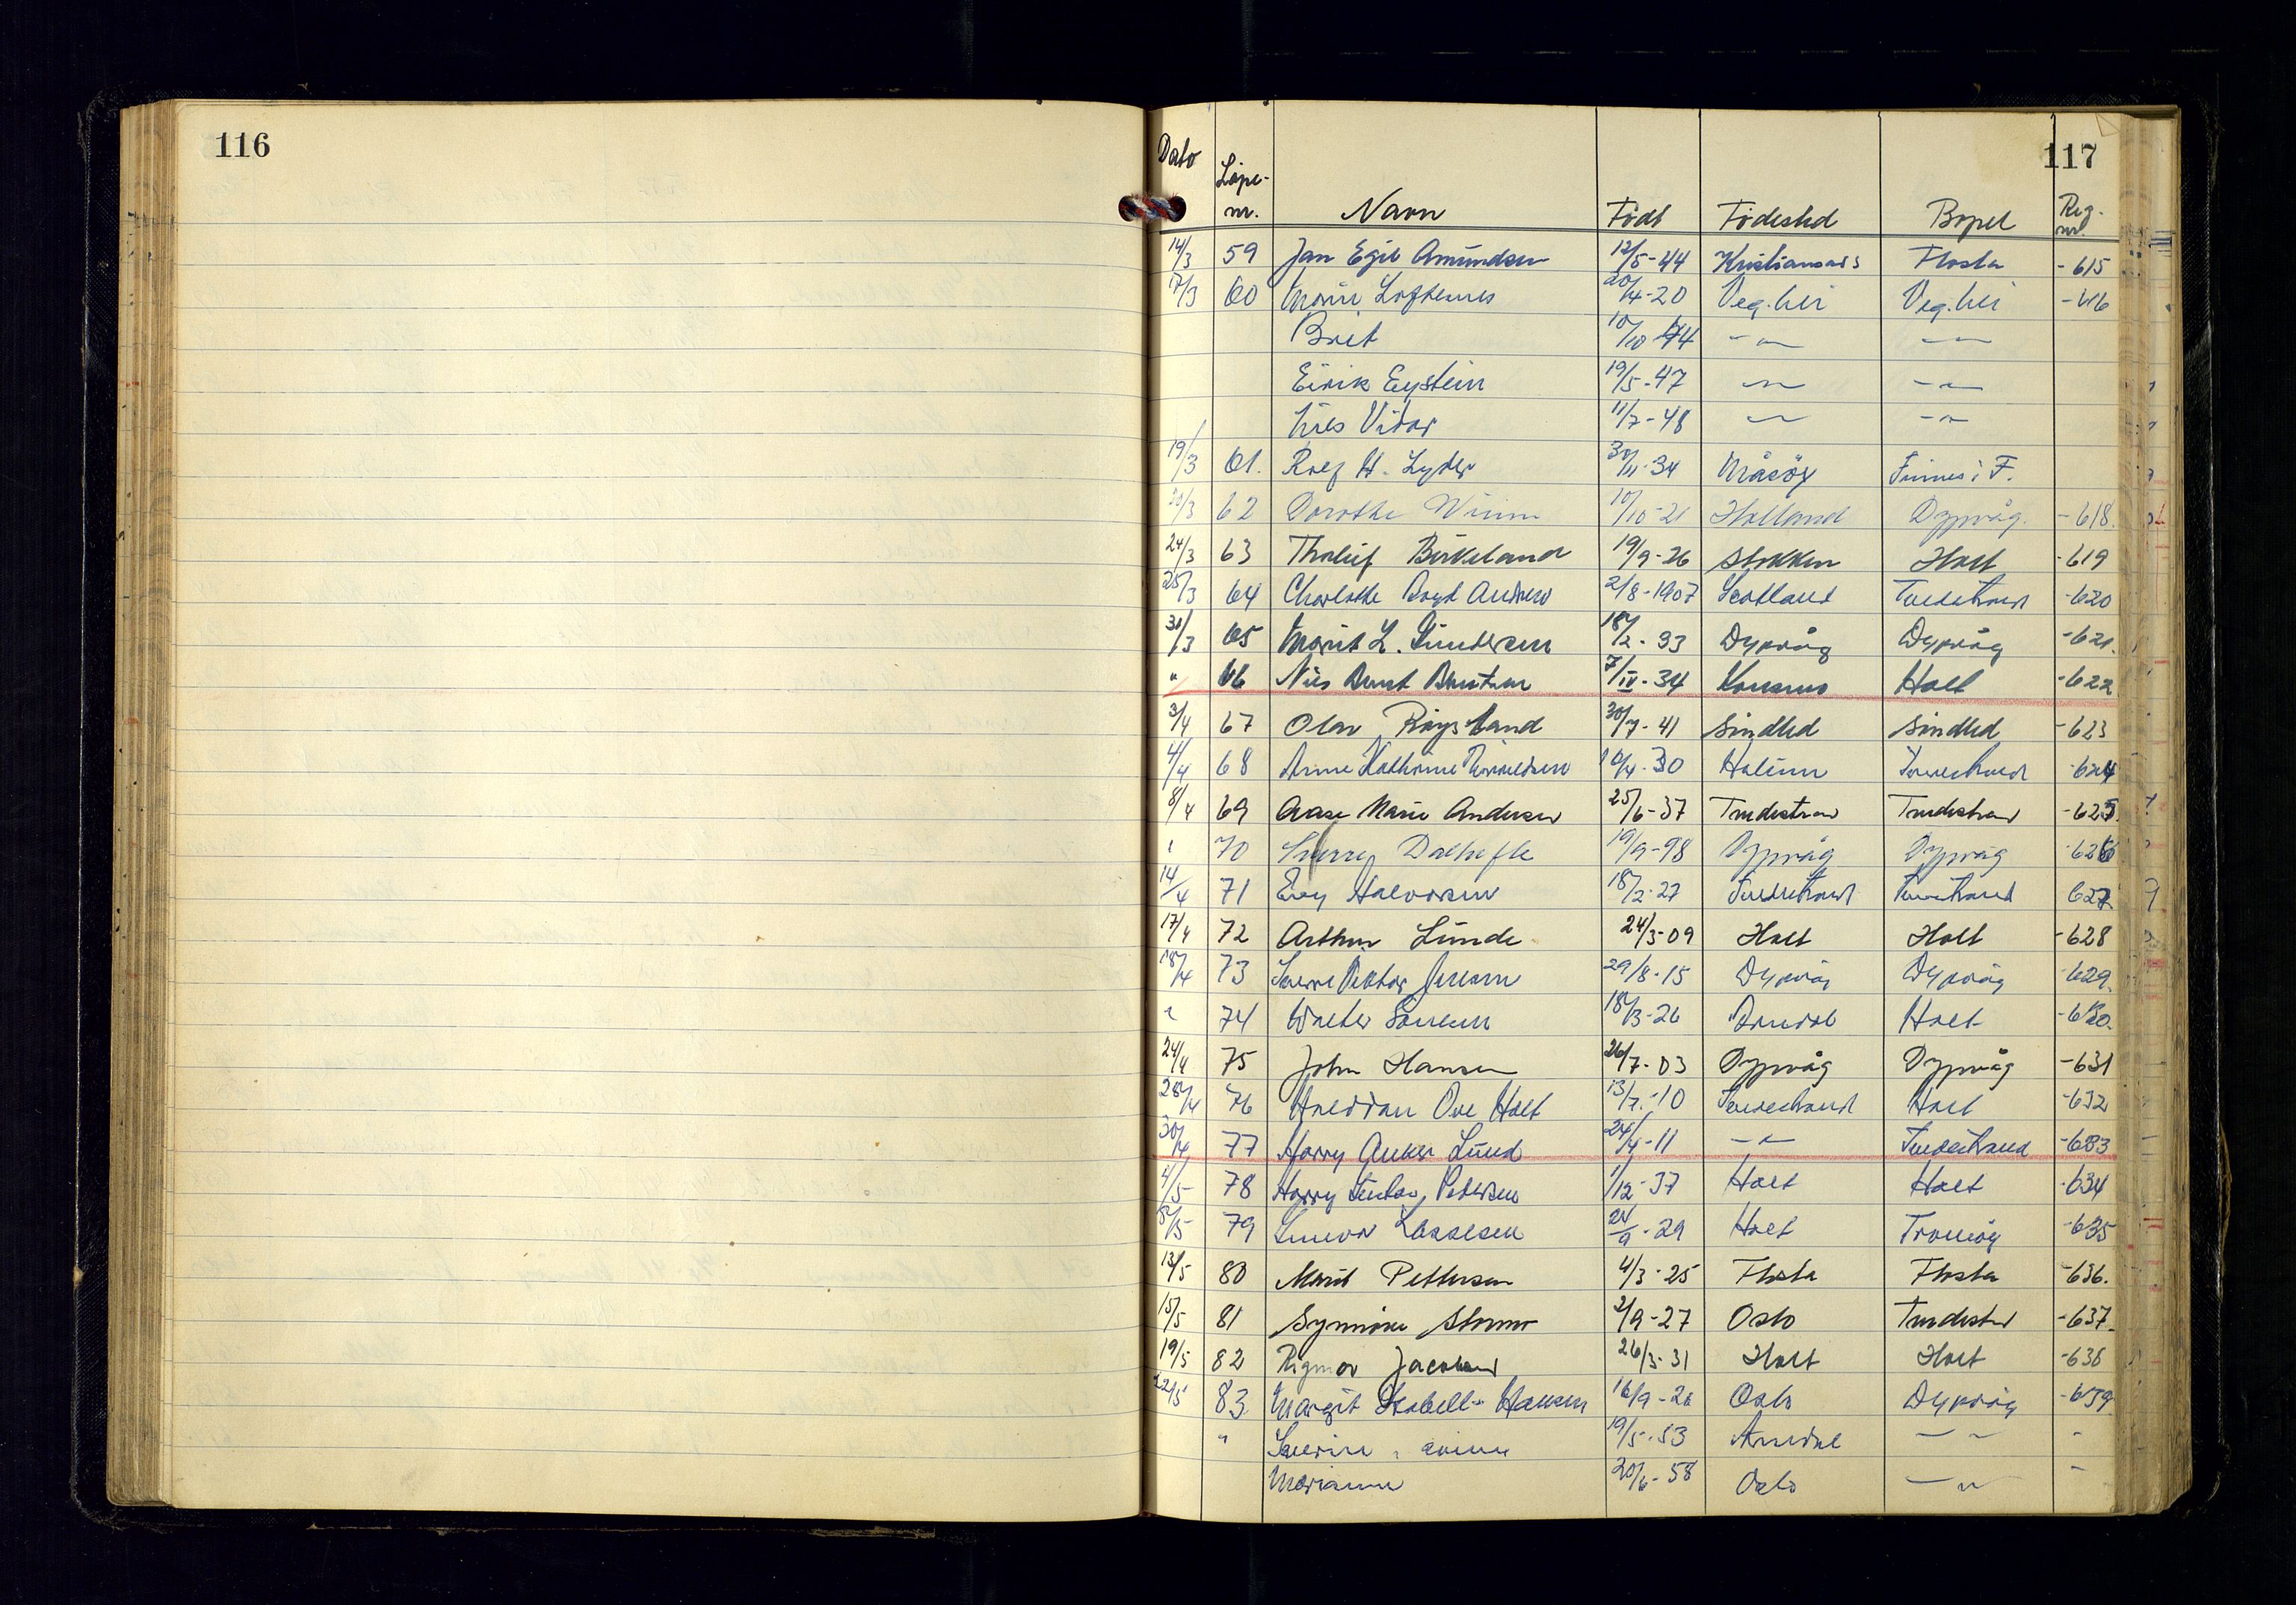 116
117
Dato Løpe-nr. Navn Født Fødested Bopel Reg. nr.
14/3 59 Jan Egil Amundsen 12/5-44 Kristiansand S Flosta -615
17/3 60 Marie Loftesnes 20/4-20 Veg.hei Veg.hei -616
Brit 10/10-44 -"- -"-
Eirik Eystein 19/5-47 -"- -"-
Nils Vidar 11/7-48 -"- -"-
19/3 61. Rolf H. Lyder 30/11-34 Måsøy Finnes i F.
20/3 62 Dorothe 10/10-21 Holland Dypvåg. -618.
24/3 63 Tholief Birkeland 19/9-26 Stokken Holt -619
25/3 64 Charlotte Boyd Andrew 2/8-1907 Scotland Tvedestrand -620
31/3 65 Marit L. Gundersen 18/2-33 Dypvåg Dypvåg -621.
" 66 Nils Bernt 7/IV-34 Holt -622
3/4 67 Olav Røysland 30/7-41 Søndled Søndled -623
4/4 68 Anne Kathrine 10/4-30 Tvedestrand -624
8/4 69 Aase Marie Andersen 25/6-37 Tvedestrand Tvedestrand -625.
" 70 Sverre 19/9-98 Dypvåg Dypvåg -626
14/4 71 Evy Halvorsen 18/2-27 Tvedestrand Tvedestrand 627
17/4 72 Arthur Lunde 24/3-09 Holt Holt -628
18/4 73 Sverre Viktor Jensen 29/8-15 Dypvåg Dypvåg -629.
" 74 Walter Sørensen 18/3-26 Arendal Holt -630.
24/4 75 John Hansen 26/7-03 Dypvåg Dypvåg -631
28/4 76 Halvdan Ove Holt 13/7-10 Tvedestrand Holt -632
30/4 77 Harry Anker Lund 24/4-11 -"- Tvedestrand -633
4/5 78 Harry Gustav Pedersen 1/12-37 Holt Holt -634
8/5 79 Gunvor Lassesen 24/9-29 Holt Tromøy -635
13/5 80 Marit Pettersen 4/3-25 Flosta Flosta -636.
15/5 81 Synnøve Stormo 2/9-27 Oslo Tvedestrand -637.
19/5 82 Rigmor Jacobsen 26/3-31 Holt Holt -638
22/5 83 Margit Isabell Hansen 16/9-26 Oslo Dypvåg -639
" 19/5-53 Arendal -"- -
Marianne 20/6-58 Oslo -"- -